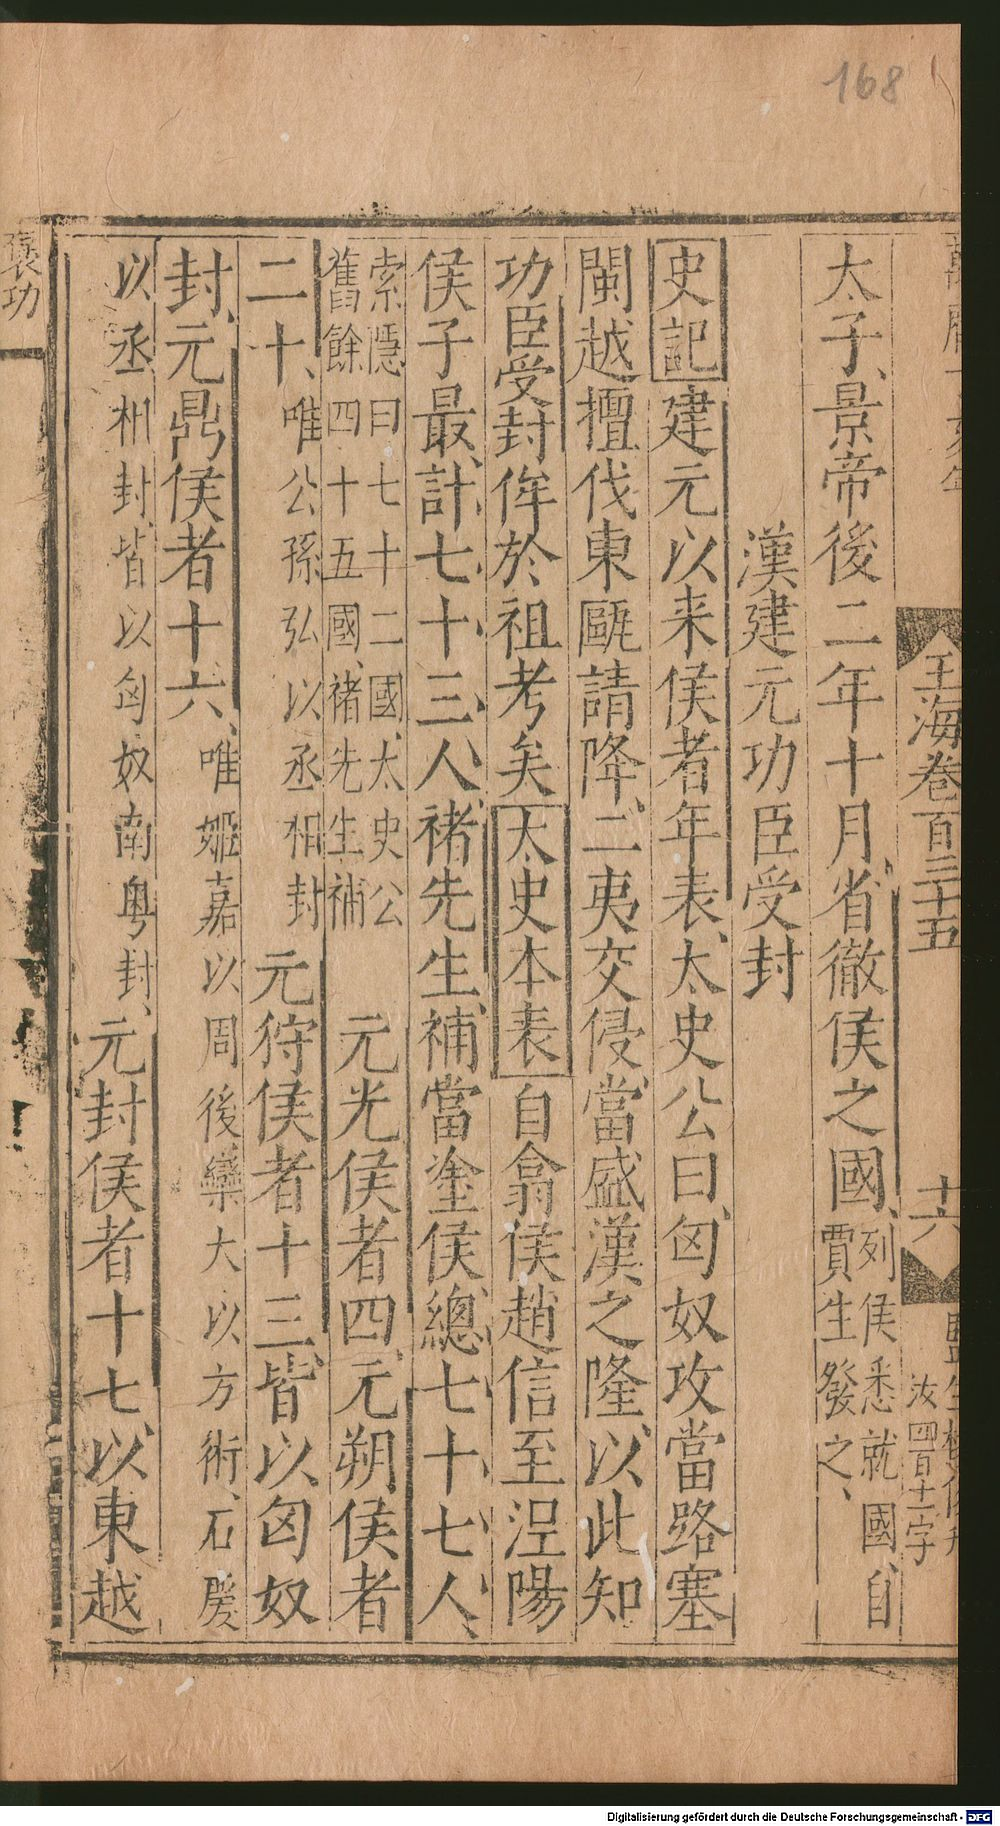 168
玉海卷百三十五
十六
汝 四百十二字
太子、景帝後二年十月、省徹侯之國、列侯悉就國、自賈生發之、
漢建元功臣受封
史記建元以来侯者年表、太史公曰、匈奴攻當路塞
閩越擅伐東甌請降、二夷交侵、當盛漢之隆、以此知
功臣受封侔於祖考矣太史本表自翕侯趙信至涅陽
侯子最、計七十三人、褚先生、補當塗侯、總七十七人、
索隱曰七十二國、太史公舊餘四十五國、褚先生補 元光侯者四、元朔侯者
二十、唯公孫弘以丞相封 元狩侯者十三、皆以匈奴
封、元鼎侯者十六、唯姬嘉以周後欒大以方術、石慶
以丞相封、皆以匈奴南粤封、元封侯者十七、以東越
褒功
Digitalisierung gefördert durch die Deutsche Forschungsgemeinschaft - DFG